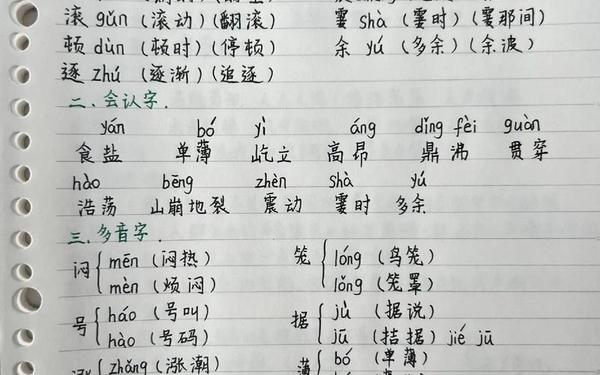 滚 gǔn (滚动)(翻滚) 霎 shà (霎时)(霎那间)
顿 dùn (顿时)(停顿) 余 yú (多余)(余波)
逐 zhú (逐渐)(追逐)
二、会认字.
yán bó yì áng dǐng fèi guàn
食盐 单薄 屹立 高昂 鼎沸 贯穿
hào bēng zhèn shà yú
浩荡 山崩地裂 震动 霎时 多余
三、多音字
闷 { mēn (闷热) 笼 { lóng (鸟笼)
mèn (烦闷) lǒng (笼罩)
号 { háo (号叫) 据 { jù (据说)
hào (号码) jū (拮据) jié jū
涨 { zhǎng (涨潮) 薄 { bó (单薄)